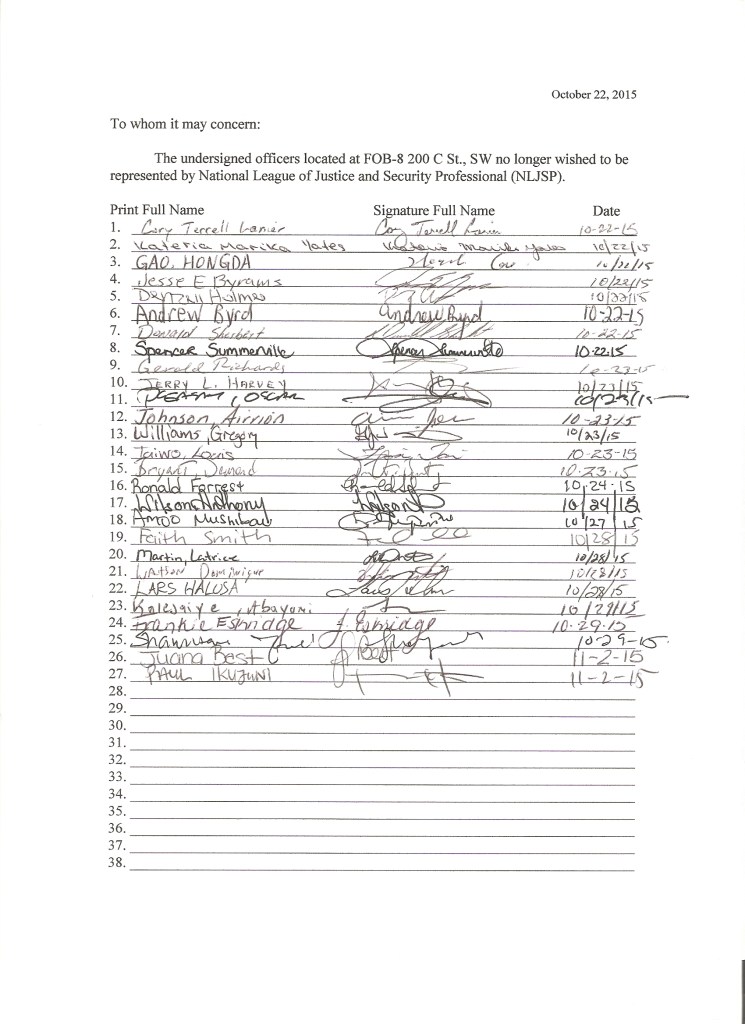 October 22, 2015
To whom it may concern:
The undersigned officers located at FOB-8 200 C St., SW no longer wished to be
represented by National League of Justice and Security Professional (NLJSP).
Print Full Name Signature Full Name Date
1. Cory Terrell Lanier Cory Terrell Lanier 10-22-15
2. Kateria Marika Yates Kateria Marika Yates 10/22/15
3. GAO, HONGDA 10/22/15
4. Jesse E Byrams 10/22/15
5. Denzell Holmes 10/22/15
6. Andrew Byrd Andrew Byrd 10-22-15
7. Donald Sherbert 10-22-15
8. Spencer Summerville Spencer Summerville 10.22.15
9. Gerald Richards 10-23-15
10. JERRY L. HARVEY 10/23/15
11. OSCAR 10/23/15
12. Johnson, Airrion 10-23-15
13. Williams, Gregory 10/23/15
14. Taiwo, Louis 10-23-15
15. Bryant, 10.23.15
16. Ronald Forrest 10,24-15
17. Wilson Anthony Wilson 10/24/15
18. AMOO Mushibau 10/27/15
19. Faith Smith 10/28/15
20. Martin, Latrice 10/28/15
21. Dominique 10/28/15
22. LARS HALUSA 10/28/15
23. Kolesaiye, Abayomi 10/29/15
24. Frankie Eskridge f. Eskridge 10-29-15
25. Shannon 10-29-15
26. Juana Best J Best 11-2-15
27. PAUL IKUJUNI 11-2-15
28.
29.
30.
31.
32.
33.
34.
35.
36.
37.
38.